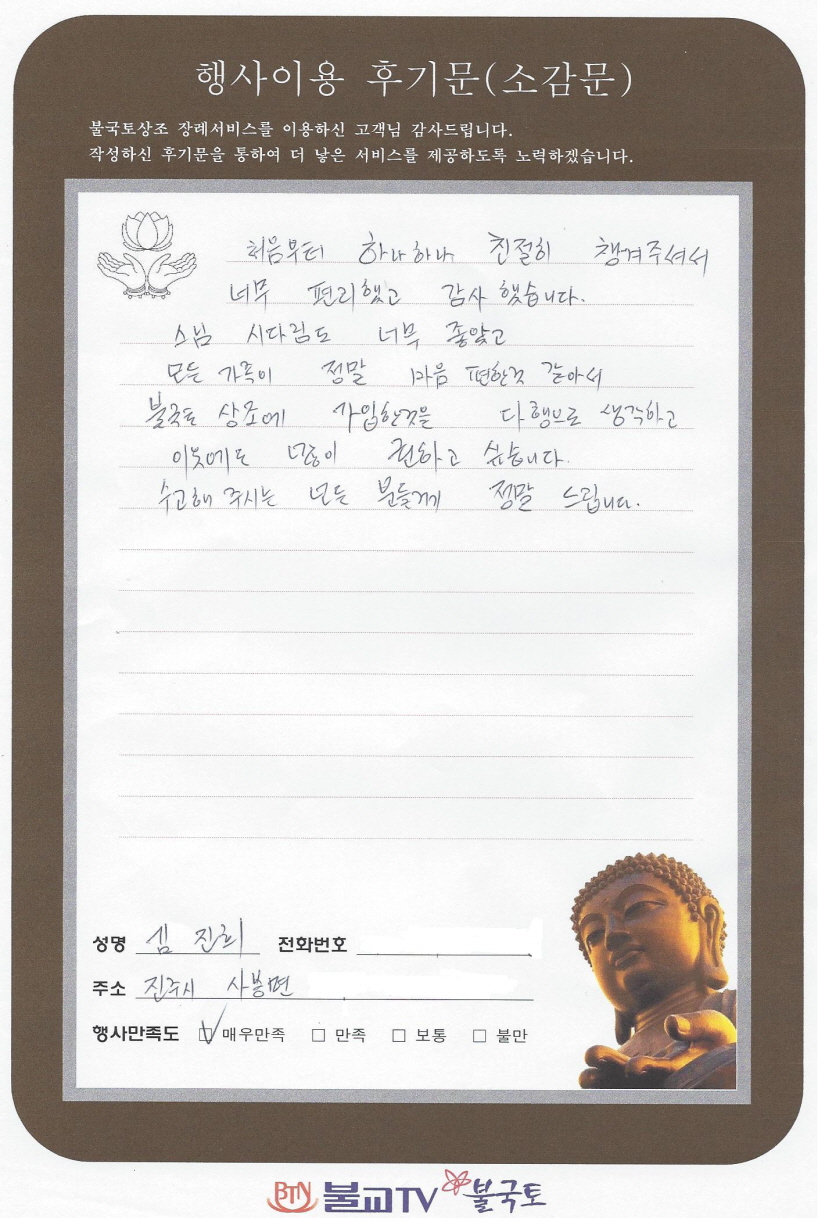 행사이용 후기문(소감문)
불국토상조 장례서비스를 이용하신 고객님 감사드립니다.
작성하신 후기문을 통하여 더 낳은 서비스를 제공하도록 노력하겠습니다.
처음부터 하나하나 친절히 챙겨주셔서
너무 편리했고 감사 했습니다.
스님 시다림도 너무 좋았고
모든 가족이 정말 마음 편한것 같아서
불국토 상조에 가입한것을 다행으로 생각하고
이웃에도 많이 권하고 싶습니다.
수고해 주시는 모든 분들께 정말 드립니다.
성명 심진희 전화번호
주소 진주시 사봉면
행사만족도 ☑ 매우만족 □ 만족 □ 보통 □ 불만
BTN 불교TV 불국토